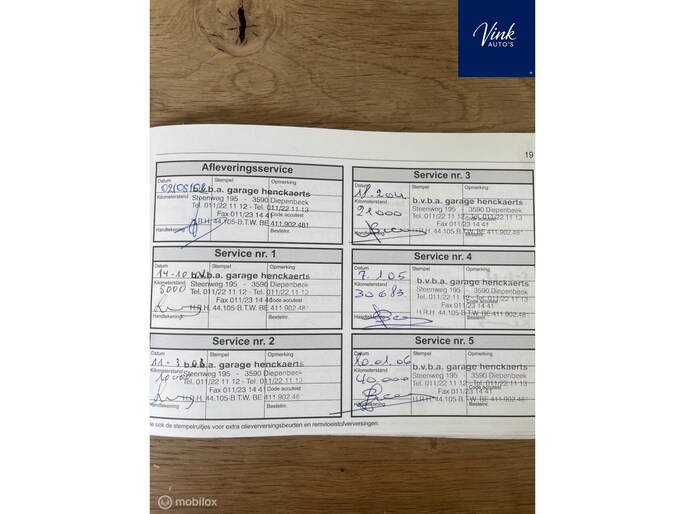 Vink
AUTO'S
19
Afleveringsservice
Datum Stempel Opmerking
b.v.b.a. garage henckaerts
Kilometerstand Steenweg 195 - 3590 Diepenbeek
Tel. 011/22 11 12 - Tel. 011/22 11 13
Fax 011/23 14 41 Code accutest
H.R.H. 44.105-B.T.W. BE 411.902.481
Handtekening Bestelnr.
Service nr. 1
Datum Stempel Opmerking
14-10 b.v.b.a. garage henckaerts
Kilometerstand Steenweg 195 - 3590 Diepenbeek
5000 Tel. 011/22 11 12 - Tel. 011/22 11 13
Fax 011/23 14 41 Code accutest
H.R.H. 44.105-B.T.W. BE 411.902.48
Handtekening Bestelnr.
Service nr. 2
Datum Stempel Opmerking
11-3 b.v.b.a. garage henckaerts
Kilometerstand Steenweg 195 - 3590 Diepenbeek
Tel. 011/22 11 12 - Tel. 011/22 11 13
Fax 011/23 14 41 Code accutest
H.R.H. 44.105-B.T.W. BE 411.902.48
Handtekening Bestelnr.
Service nr. 3
Datum Stempel Opmerking
b.v.b.a. garage henckaerts
Kilometerstand Steenweg 195 - 3590 Diepenbeek
21000 Tel. 011/22 11 12 - Tel. 011/22 11 13
Fax 011/23 14 41 Code accutest
H.R.H. 44.105-B.T.W. BE 411.902.481
Handtekening Bestelnr.
Service nr. 4
Datum Stempel Opmerking
7.1.05 b.v.b.a. garage henckaerts
Kilometerstand Steenweg 195 - 3590 Diepenbeek
30683 Tel. 011/22 11 12 - Tel. 011/22 11 13
Fax 011/23 14 41 Code accutest
H.R.H. 44.105-B.T.W. BE 411.902.481
Bestelnr.
Service nr. 5
Datum Stempel Opmerking
10.01.06 b.v.b.a. garage henckaerts
Kilometerstand Steenweg 195 - 3590 Diepenbeek
40,000 Tel. 011/22 11 12 - Tel. 011/22 11 13
Fax 011/23 14 41 Code accutest
H.R.H. 44.105-B.T.W. BE 411.902.48
Handtekening Bestelnr.
ie ook de stempelruitjes voor extra olieverversingsbeurten en remvloeistofverversingen.
mobilox